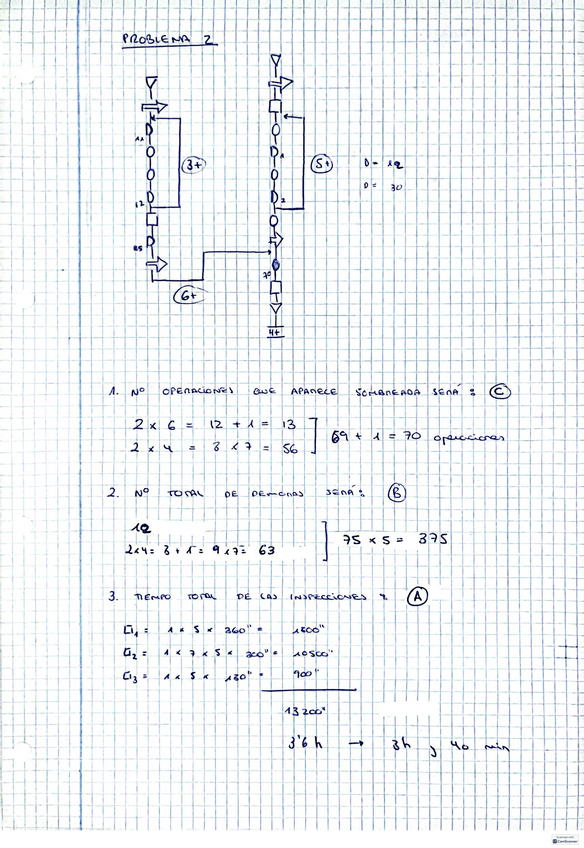 PROBLEMA 2
11
12
85
3+
6+
1
2
5+
70
4+
D = 12
D = 30
1. Nº OPERACIONES QUE APARECE SOMBREADA SERÁ: C
2 x 6 = 12 + 1 = 13
2 x 4 = 8 x 7 = 56
69 + 1 = 70 operaciones
2. Nº TOTAL DE DEMORAS SERÁ: B
12
2x4= 8 + 1 = 9 x7= 63
75 x 5 = 375
3. TIEMPO TOTAL DE LAS INSPECCIONES A
1 = 1 x 5 x 360" = 1800"
2 = 1 x 7 x 5 x 300" = 10500"
3 = 1 x 5 x 180" = 900"
13200"
3'6 h → 3h y 40 min
Scanned with
CamScanner